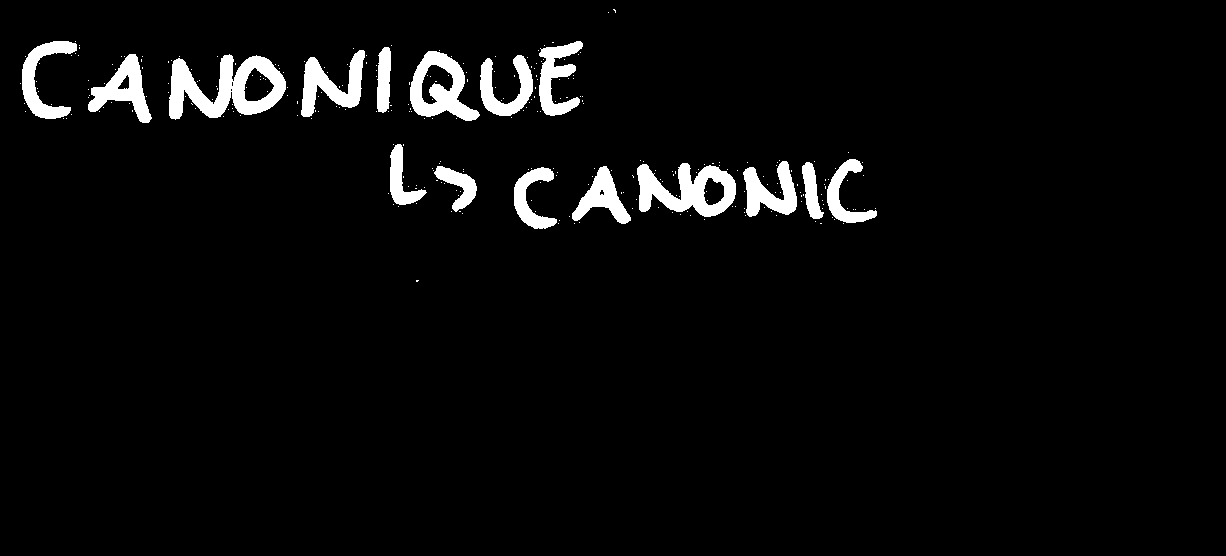 CANONIQUE
↳ CANONIC